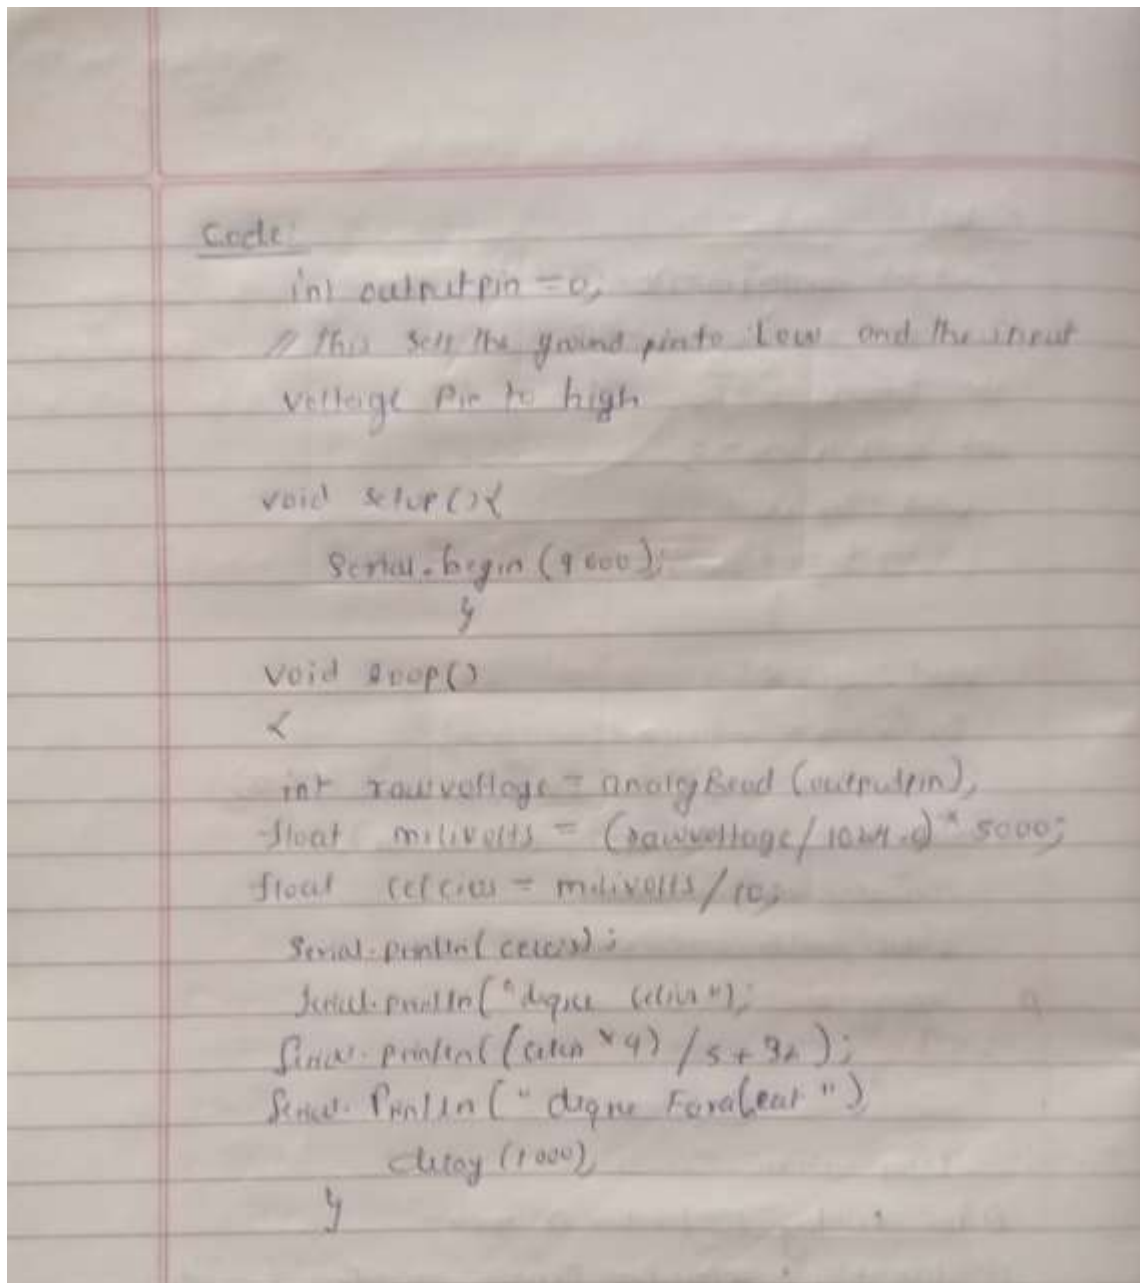 Code:
int outputpin = 0;
// this sets the ground pin to Low and the input
voltage Pin to high
void setup(){
Serial.begin(9600);
}
void loop()
{
int rawvoltage = analogRead (outputpin);
float milivolts = (rawvoltage/1024.0) * 5000;
float celcius = milivolts/10;
Serial.println( );
Serial.println("degree ");
Serial.println(( *9) /5 + 32 );
Serial.Println (" degree ")
delay (1000);
}